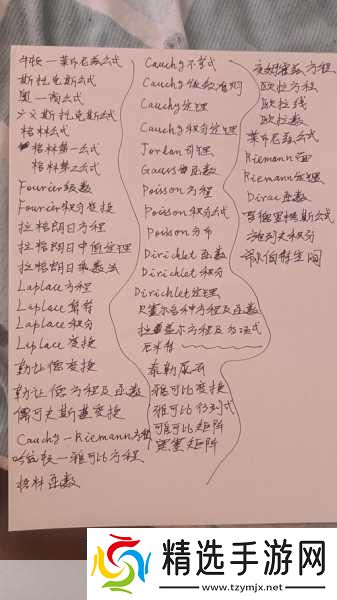 牛顿—莱布尼兹公式
斯托克斯公式
奥—高公式
广义斯托克斯公式
格林公式
格林第一公式
格林第二公式
Fourier级数
Fourier积分变换
拉格朗日方程
拉格朗日中值定理
拉格朗日乘数法
Laplace方程
Laplace算符
Laplace积分
Laplace变换
勒让德变换
勒让德方程及函数
儒可夫斯基变换
Cauchy—Riemann方程
哈密顿—雅可比方程
格林函数
Cauchy不等式
Cauchy级数准则
Cauchy定理
Cauchy积分定理
Jordan引理
Gauss函数
Poisson方程
Poisson积分公式
Poisson分布
Dirichlet函数
Dirichlet积分
Dirichlet定理
贝塞尔各种方程及函数
拉盖尔方程及多项式
厄米特
泰勒展开
雅可比变换
雅可比行列式
可雅可比矩阵
黑塞矩阵
欧拉方程
欧拉线
欧拉数
莱布尼兹公式
Riemann面
Riemann定理
Dirac函数
菲涅耳积分
希尔伯特空间
精选手游网
www.tzymjx.net